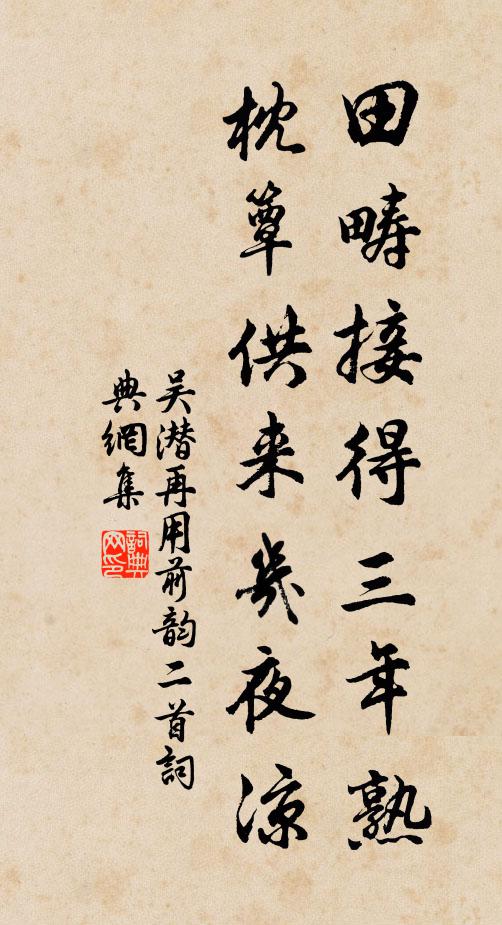 田疇接得三年熟
枕簟供来幾夜凉
吴潜再用前韵二首詞
典網集
詞典
网印